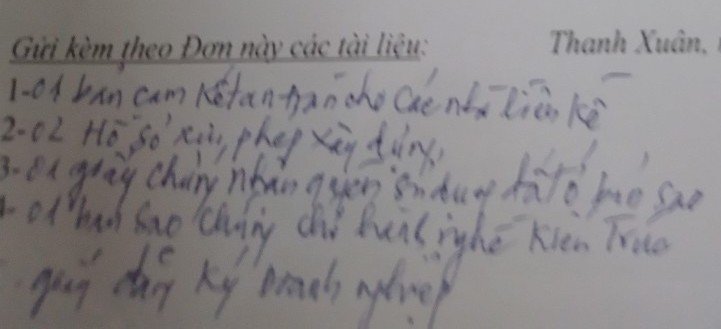 Gửi kèm theo Đơn này các tài liệu: Thanh Xuân,
1-01 bản cam kết an toàn cho các nhà liền kề
2-02 Hồ sơ xin phép xây dựng,
3-01 giấy chứng nhận quyền sử dụng đất ở bản sao
4-01 bản sao chứng chỉ hành nghề Kiến Trúc
giấy đăng ký doanh nghiệp